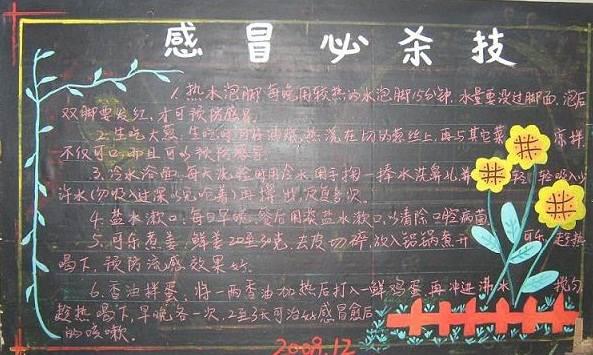 感冒必杀技
1.热水泡脚 每晚用较热的水泡脚15分钟,水量要没过脚面,泡后
双脚要发红,才可预防感冒.
2.生吃大葱,生吃时可将油烧热浇在切的葱丝上,再与其它菜 凉拌,
不仅可口而且可以预防感冒.
3.冷水浴面,每天洗脸时用冷水用手掬一捧水洗鼻孔,并 轻轻吸入少
许水(勿吸入过深以免呛着)再擤出,反复多次.
4.盐水漱口,每日早晚餐后用淡盐水漱口,以清除口腔病菌
5.可乐煮姜 鲜姜20至30克,去皮切碎,放入铝锅煮开 可乐 趁热
喝下,预防流感效果好.
6.香油拌蛋,将一两香油加热后打入一鲜鸡蛋,再冲进沸水 搅匀
趁热喝下,早晚各一次,2至3天可治好感冒愈后
的咳嗽.
2009.12